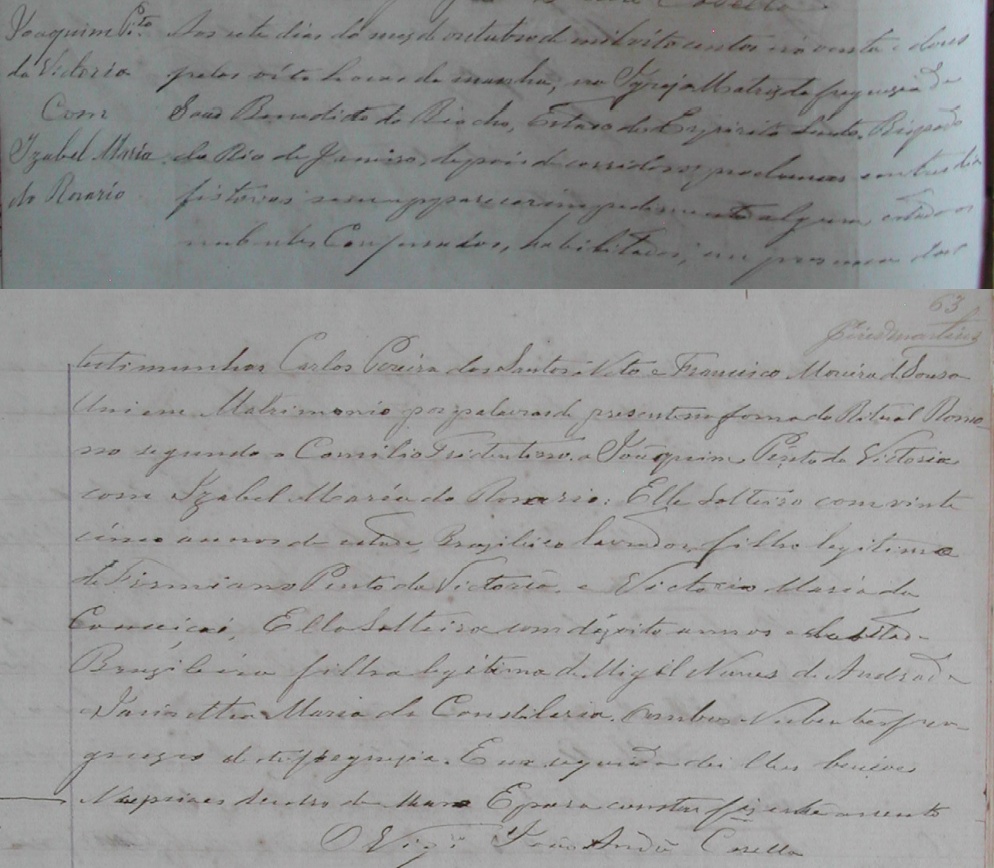 Joaquim Pto
da Victoria
Com
Izabel Maria
do Rosario
Aos sete dias do mes de outubro de mil oito centos e noventa e dous
pelas oito horas da manhã, na Igreja Matriz da freguesia de
Saõ Benedicto do Riacho, Estado do Espirito Santo, Bispado
do Rio de Janeiro, depois de corridos os proclamas em tres dias
festivos sem apparecer impedimento algum, estado os
nubentes Confessados, habilitados, em presença das
63
testimunhas Carlos Pereira dos Santos Neto e Francisco Moreira de Sousa
Uni em Matrimonio por palavras de presente na forma do Ritual Roma-
no segundo o Concilio Tridentino, a Joaquim Pinto da Victoria
com Izabel Maria do Rosario: Elle Solteiro com vinte
cinco annos de edade, Brazileiro lavrador, filho legitimo
de Firmiano Pinto da Victoria, e Victoria Maria da
Conceicaõ, Ella Solteira com dezoito annos de edade
Brazileira filha legitima de Migil Nunes de Andrade
e Maria da Constilaria. Ambos Nubentes fre-
guezes desta freguesia. E em seguida dei lhes bençoes
Nupciaes dentro da Missa E para constar fiz este assento
O Vigº João André Casella